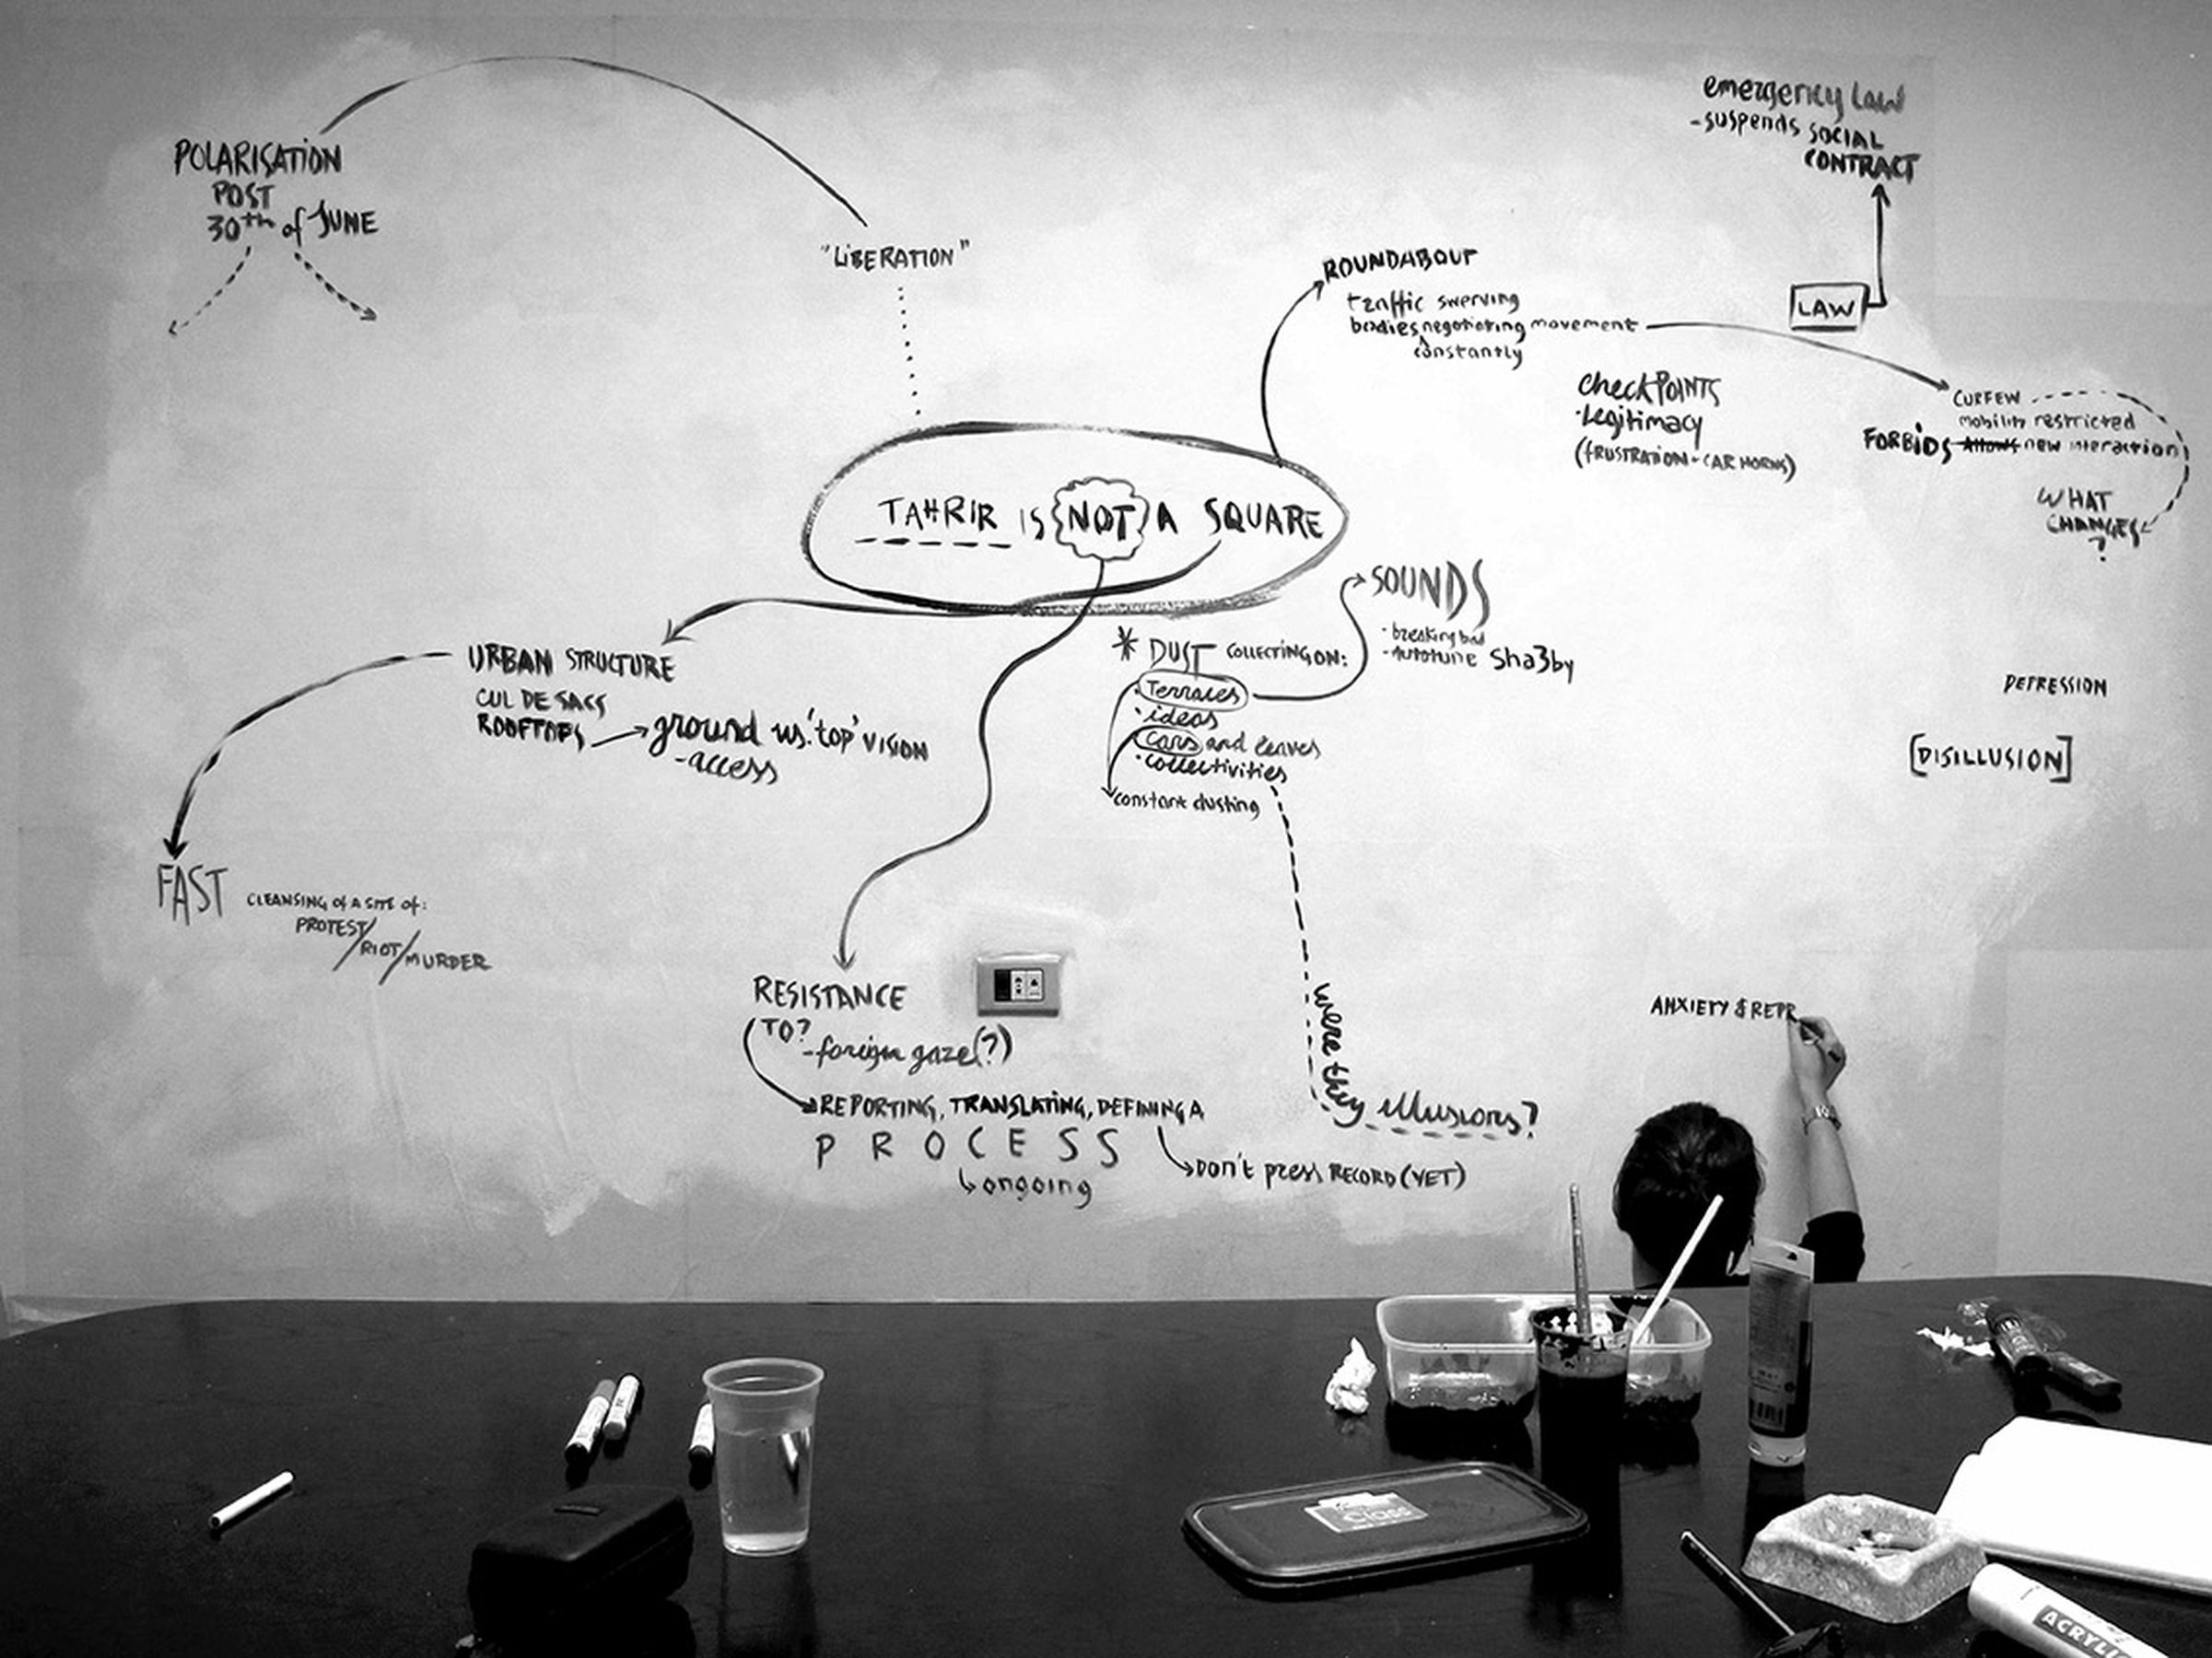 POLARISATION
POST
30th of JUNE
"LIBERATION"
emergency law
- suspends SOCIAL
CONTRACT
LAW
ROUNDABOUT
traffic swerving
bodies negotiating movement
constantly
checkPOINTS
·Legitimacy
(FRUSTRATION - CAR HORNS)
CURFEW
mobility restricted
FORBIDS Allows new interaction
WHAT
CHANGES
?
TAHRIR IS NOT A SQUARE
SOUNDS
- breaking bad
- autotune Sha3by
* DUST COLLECTING ON:
· Terraces
· ideas
· cars and leaves
· collectivities
constant dusting
were they illusions?
URBAN STRUCTURE
CUL DE SACS
ROOFTOPS
ground vs. 'top' VISION
- access
FAST
CLEANSING of A SITE of:
PROTEST/
RIOT/MURDER
DEPRESSION
[DISILLUSION]
RESISTANCE
TO?
- foreign gaze (?)
REPORTING, TRANSLATING, DEFINING A
PROCESS
ongoing
DON'T press RECORD (YET)
ANXIETY & REPR
Class
ACRYLI